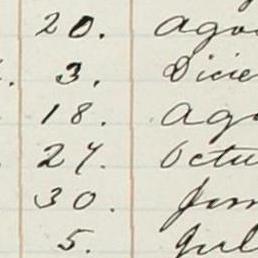 20. Ago
3. Dicie
18. Ago
27. Octu
30. Jun
5. Jul